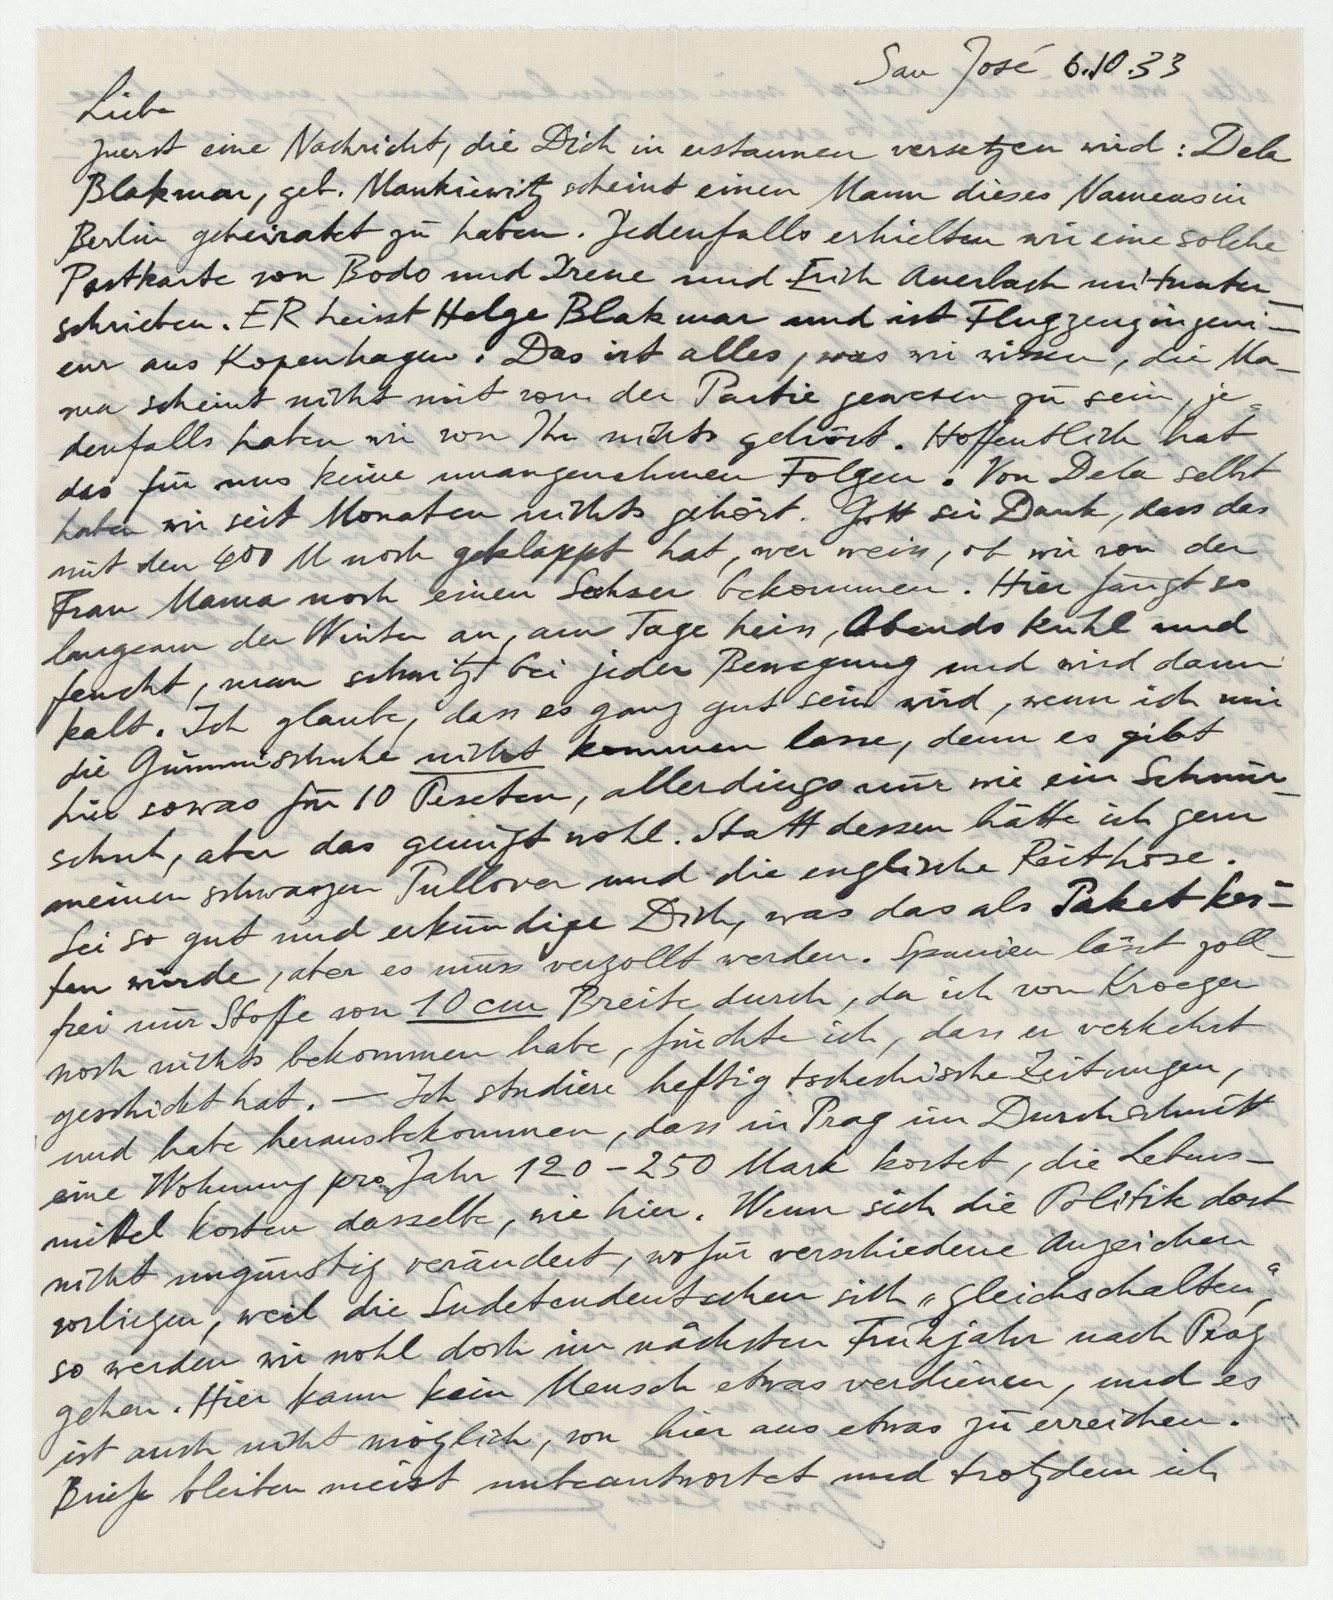 San José 6.10.33
Liebe
zuerst eine Nachricht, die Dich in erstaunen versetzen wird: Dela
Blakmar, geb. Mankiewitz scheint einen Mann dieses Namens in
Berlin geheiratet zu haben. Jedenfalls erhielten wir eine solche
Postkarte von Bodo und Irene und Erich Auerbach mitunter-
schrieben. ER heisst Helge Blakmar und ist Flugzeugingeni-
eur aus Kopenhagen. Das ist alles, was wir wissen, die Ma-
ma scheint nicht mit von der Partie gewesen zu sein, je-
denfalls haben wir von Ihr nichts gehört. Hoffentlich hat
das für uns keine unangenehmen Folgen. Von Dela selbst
haben wir seit Monaten nichts gehört. Gott sei Dank, dass das
mit den 400 M noch geklappt hat, wer weiss, ob wir von der
Frau Mama noch einen Sechser bekommen. Hier fängt so
langsam der Winter an, am Tage heiss, Abends kühl und
feucht, man schwitzt bei jeder Bewegung und wird dann
kalt. Ich glaube, dass es ganz gut sein wird, wenn ich mir
die Gummischuhe nicht kommen lasse, denn es gibt
hier sowas für 10 Peseten, allerdings nur wie ein Schnür-
schuh, aber das genügt wohl. Statt dessen hätte ich gern
meinen schwarzen Pullover und die englische Reithose.
Sei so gut und erkundige Dich, was das als Paket kos-
ten würde, aber es muss verzollt werden. Spanien lässt zoll-
frei nur Stoffe von 10 cm Breite durch, da ich von Kroeger
noch nichts bekommen habe, fürchte ich, dass er verkehrt
geschickt hat. — Ich studiere heftig tschechische Zeitungen,
und habe herausbekommen, dass in Prag im Durchschnitt
eine Wohnung pro Jahr 120–250 Mark kostet, die Lebens-
mittel kosten dasselbe, wie hier. Wenn sich die Politik dort
nicht ungünstig verändert, wofür verschiedene Anzeichen
vorliegen, weil die Sudetendeutschen sich „gleichschalten",
so werden wir wohl doch im nächsten Frühjahr nach Prag
gehen. Hier kann kein Mensch etwas verdienen, und es
ist auch nicht möglich, von hier aus etwas zu erreichen.
Briefe bleiben meist unbeantwortet und trotzdem ich